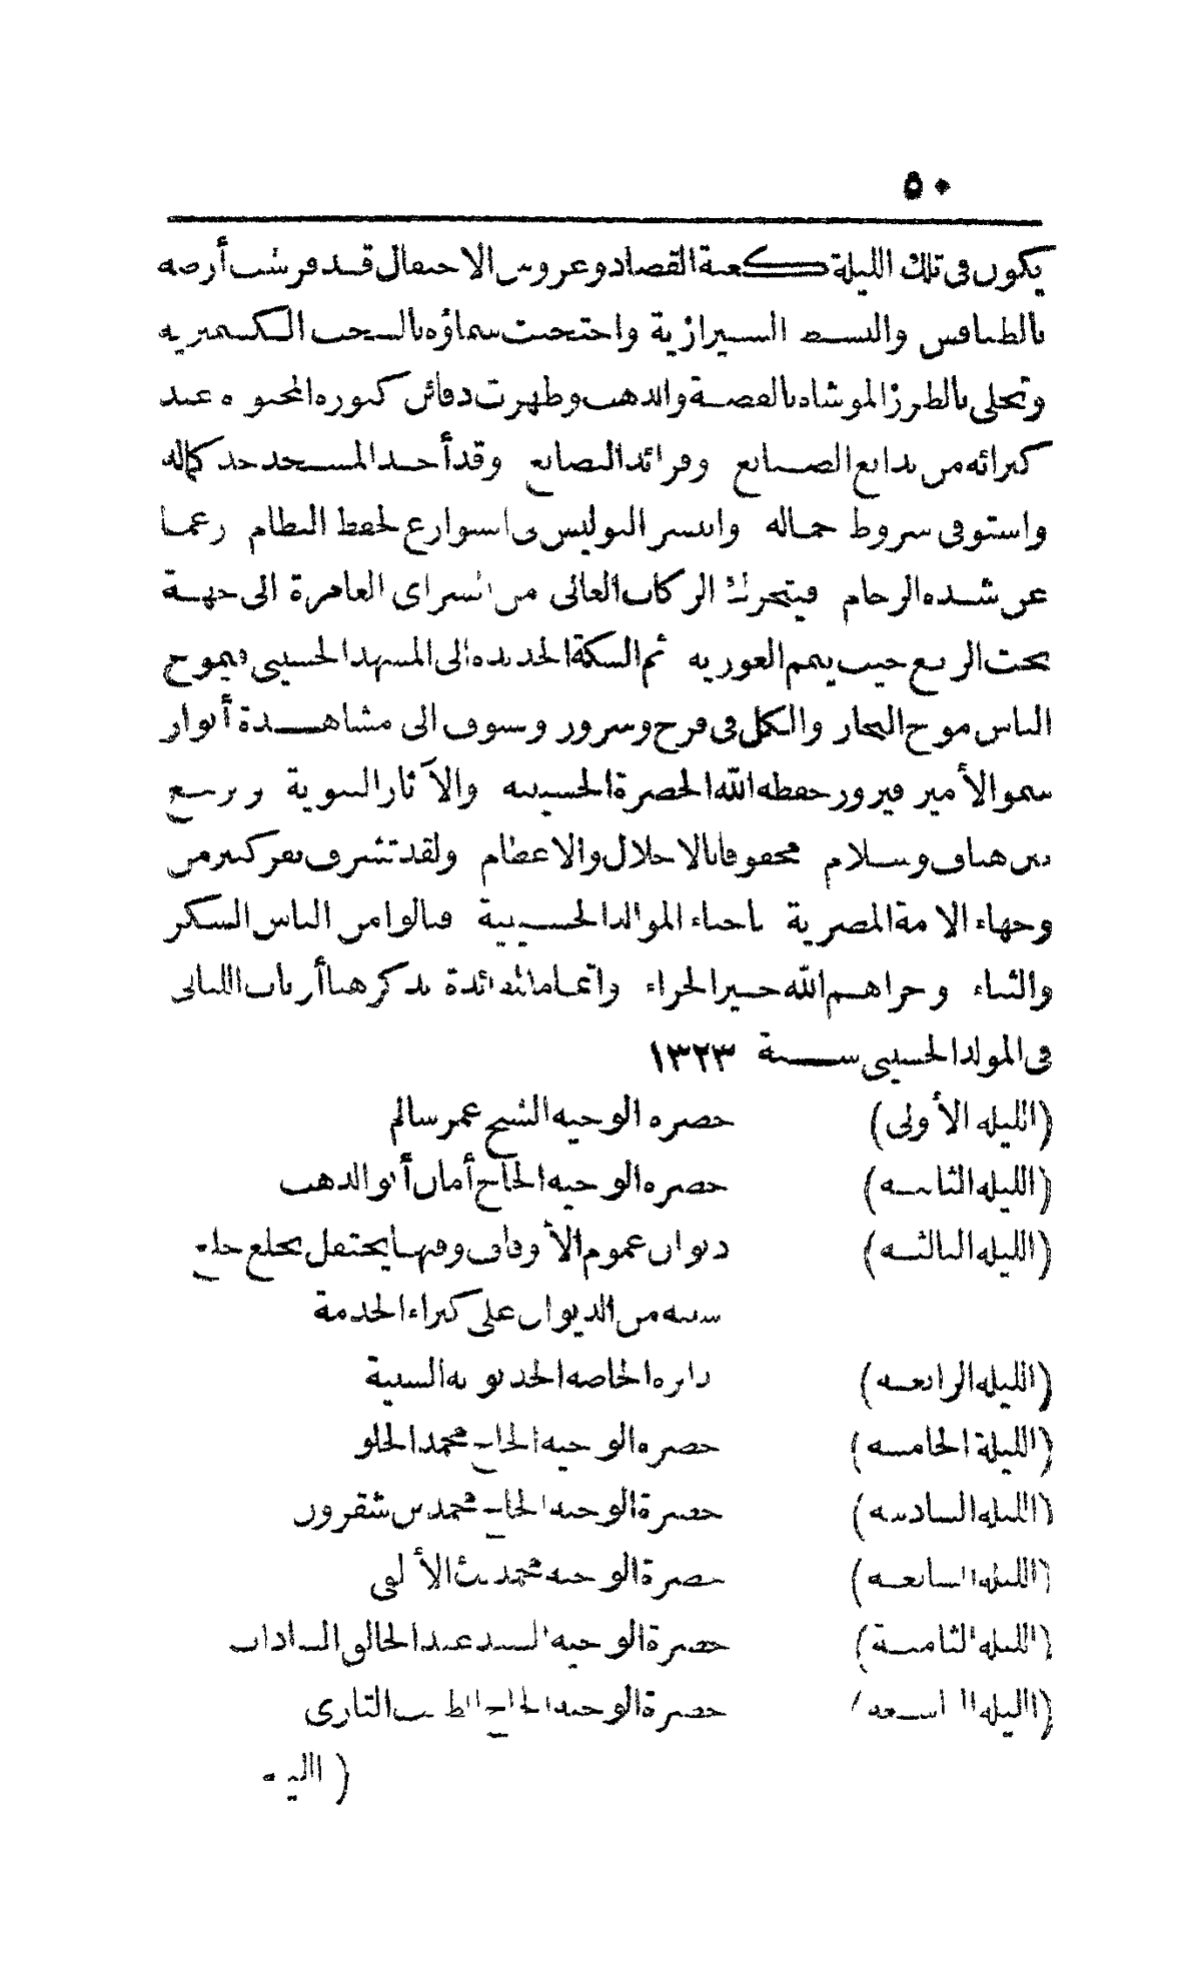 ٥٠
يكون فى تلك الليلة كعبة القصاد وعروس الاحتفال قد فرشت أرضه
بالطنافس والبسط الشيرازية واحتجبت سماؤه بالسحب الكشميرية
وتحلى بالطرز الموشاه بالفضة والذهب وظهرت دفائن كنوزه المخبوءه عند
كبرائه من بدائع الصنائع وفرائد البضائع وقد أخذ المسجد حد كماله
واستوفى شروط جماله وانتشر البوليس فى الشوارع لحفظ النظام رغما
عن شدة الزحام فيتحرك الركاب العالى من السراى العامرة الى جهة
تحت الربع حيث ييمم الغوريه ثم السكة الجديده الى المشهد الحسينى فيموج
الناس موج البحار والكل فى فرح وسرور وشوق الى مشاهدة أنوار
سمو الأمير فيزور حفظه الله الحضرة الحسينيه والآثار النبوية ويرجع
بين هتاف وسلام محفوفا بالاجلال والاعظام ولقد تشرف نفر كبير من
وجهاء الامة المصرية باحياء الموالد الحسينية فنالوا من الناس الشكر
والثناء وجزاهم الله خير الجزاء واتماما للفائدة نذكر هنا أرباب الليالى
فى المولد الحسينى سنة ١٣٢٣
(الليله الأولى) حضره الوجيه الشيخ عمر سالم
(الليله الثانيه) حضره الوجيه الحاج أمان أبو الدهب
(الليله الثالثه) ديوان عموم الأوقاف وفيها يحتفل بخلع خلع
سنيه من الديوان على كبراء الخدمة
(الليله الرابعه) دايره الخاصه الخديويه السنية
(الليلة الخامسه) حضره الوجيه الحاج محمد الحلو
(الليله السادسه) حضرة الوجيه الحاج محمد بن شقرون
(الليله السابعه) حضرة الوجيه محمد بك الألفى
(الليله الثامنة) حضرة الوجيه السيد عبد الخالق السادات
(الليله التاسعه) حضرة الوجيه الحاج الطيب التازى
(الليله